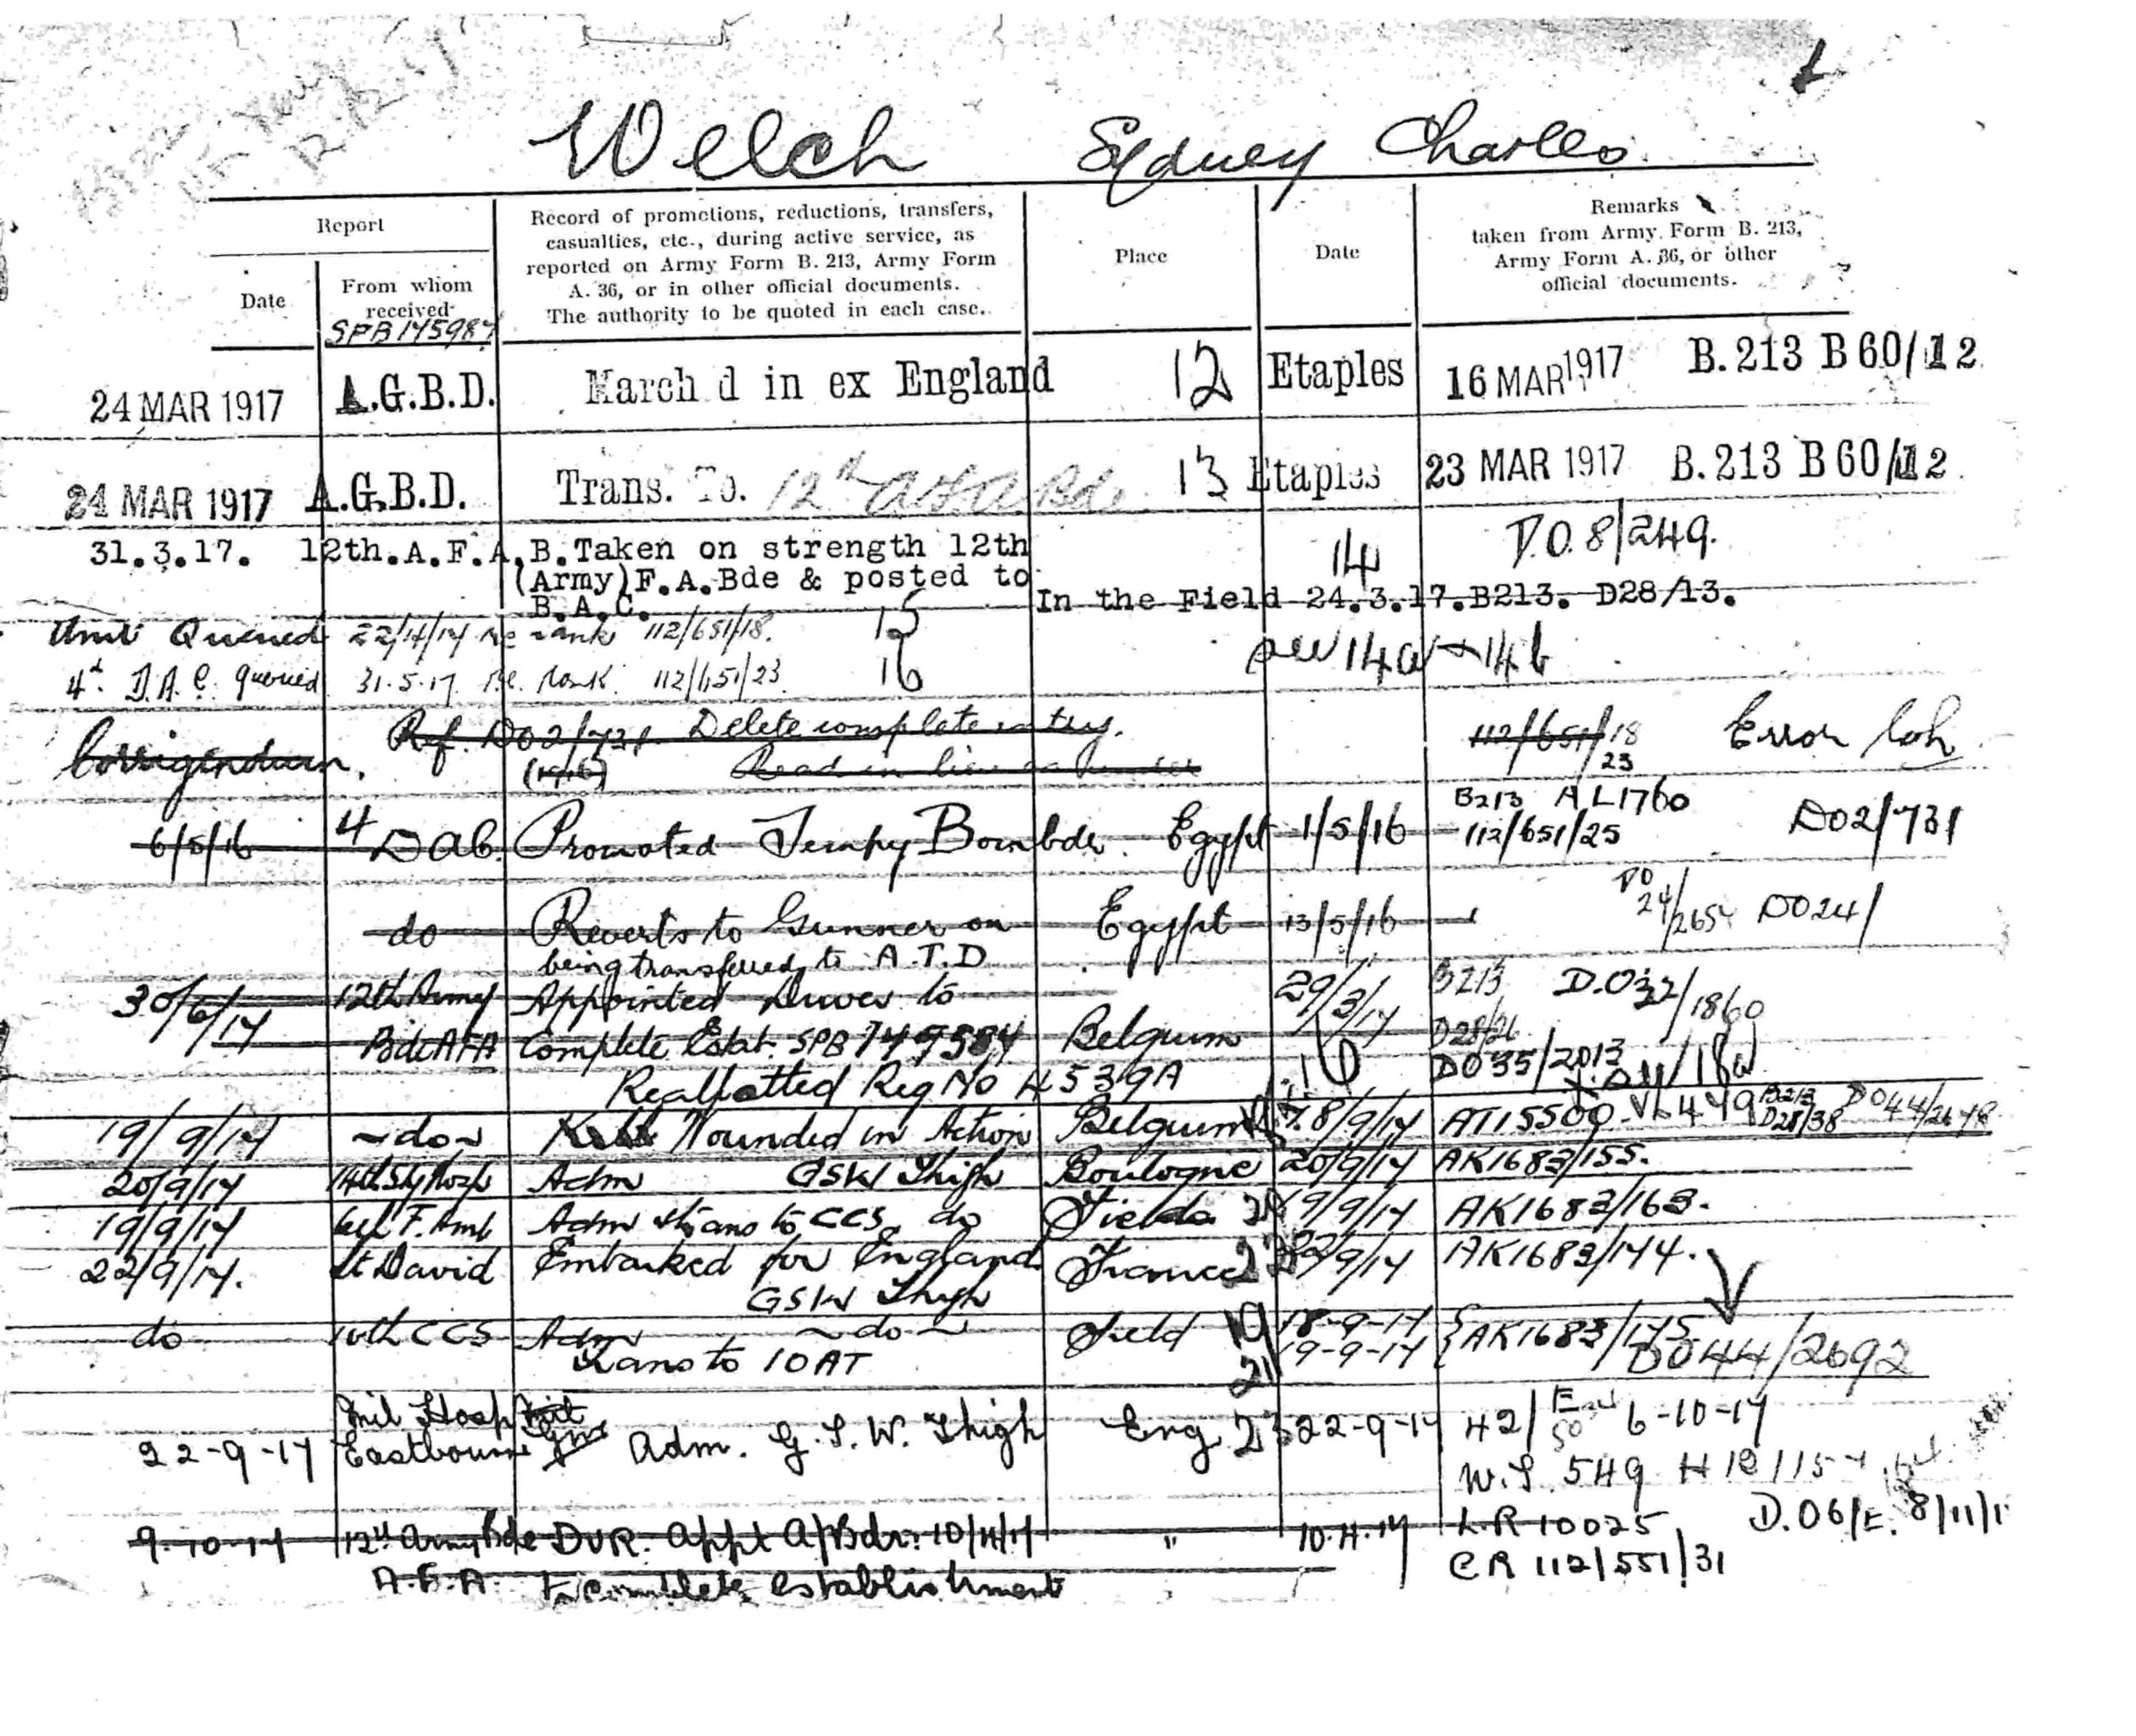 Welch Sydney Charles
Report
Record of promotions, reductions, transfers,
casualties, etc., during active service, as
reported on Army Form B. 213, Army Form
A. 36, or in other official documents.
The authority to be quoted in each case.
Place
Date
Remarks
taken from Army Form B. 213,
Army Form A. 36, or other
official documents.
Date
From whom
received
SPB 145987
24 MAR 1917 A.G.B.D. March d in ex England 12 Etaples 16 MAR 1917 B.213 B 60/12
24 MAR 1917 A.G.B.D. Trans. To. 12th A.F.A. Bde 13 Etaples 23 MAR 1917 B.213 B 60/12
31.3.17. 12th.A.F.A.B. Taken on strength 12th 14 D.O. 8/249.
(Army)F.A.Bde & posted to
B.A.C. In the Field 24.3.17. B213. D28/13.
Unit Queried 22/4/17 re rank 112/651/18. 15
4th D.A.C. queried 31.5.17. re. Rank. 112/651/23. 16
Corrigendum. Ref. D02/731 Delete complete entry. 112/651/18 Error
23
Read in lieu
B213 AL1760
6/5/16 4 DAC. Promoted Tempy Bombdr. Egypt 1/5/16 112/651/25 D02/731
do Reverts to Gunner on Egypt 13/5/16 DO 24/2654 D024/
being transferred to A.T.D
30/6/17 12th Army Appointed Driver to 29/3/17 B213 D.O32/1860
Bde AFA Complete Estat. SPB 149584 Belgium D28/26
DO35/2013
Reallotted Reg No 4539A
19/9/17 do Wounded in Action Belgium 18/9/17 AT15500 B213 D28/38 DO44/2678
20/9/17 14th Sty Hosp Adm GSW Thigh Boulogne 20/9/17 AK1683/155.
19/9/17 F. Amb Adm & trans to CCS do Field 19/9/17 AK1683/163.
22/9/17. St David Embarked for England France 22/9/17 AK1683/174.
GSW Thigh
do 10th CCS Adm do Field 19 18-9-17 AK1683/175
Trans to 10 AT 21 19-9-17 DO44/2692
Mil Hosp
22-9-17 Eastbourne Adm. G.S.W. Thigh Eng 23 22-9-17 42/ 6-10-17
W.S. 549
9-10-17 12th Army Bde DVR. appt A/Bdr. 10/4/17 " 10.4.17 L.R 10025 D.O6/E. 8/11/1
A.F.A. to complete establishment CR 112/551/31